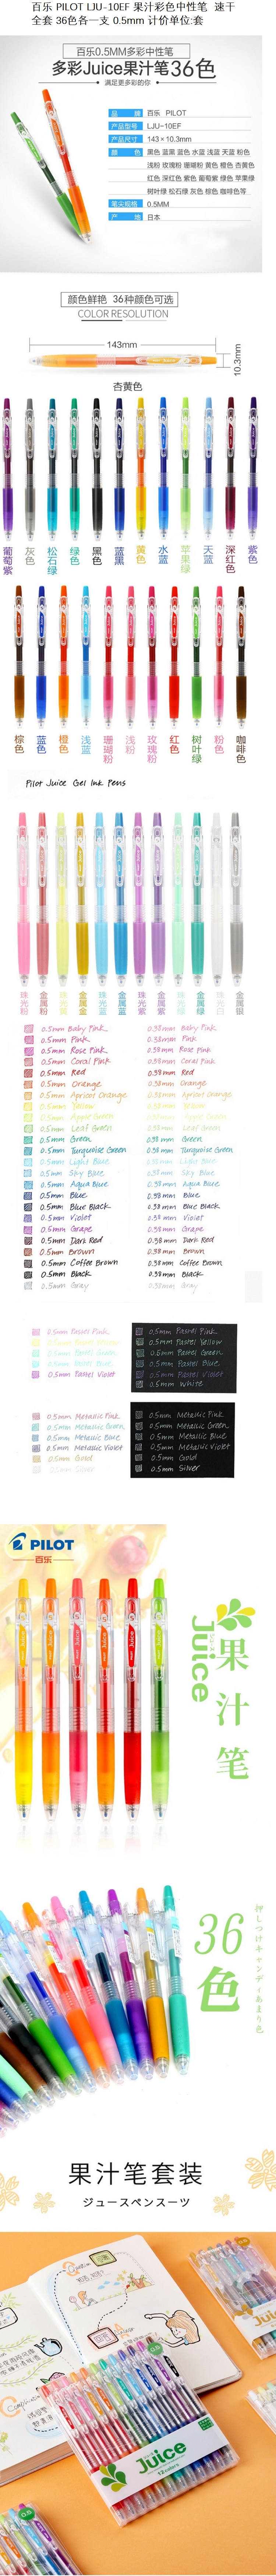 百乐 PILOT LJU-10EF 果汁彩色中性笔 速干
全套 36色各一支 0.5mm 计价单位:套
百乐0.5MM多彩中性笔
多彩Juice果汁笔36色
满足更多彩的你
品 牌 百乐 PILOT
产品型号 LJU-10EF
产品尺寸 143×10.3mm
颜 色 黑色 蓝黑 蓝色 水蓝 浅蓝 天蓝 粉色
浅粉 玫瑰粉 珊瑚粉 黄色 橙色 杏黄色
红色 深红色 紫色 葡萄紫 绿色 苹果绿
树叶绿 松石绿 灰色 棕色 咖啡色等
笔尖规格 0.5MM
产 地 日本
颜色鲜艳 36种颜色可选
COLOR RESOLUTION
143mm
10.3mm
杏黄色
葡萄紫 灰色 松石绿 绿色 黑色 蓝黑 黄色 水蓝 苹果绿 天蓝 深红色 紫色
棕色 蓝色 橙色 浅蓝 珊瑚粉 浅粉 玫瑰粉 红色 树叶绿 粉色 咖啡色
Pilot Juice Gel Ink Pens
珠光粉 金属粉 珠光黄 金属金 珠光蓝 金属蓝 珠光紫 金属紫 珠光绿 金属绿 珠光白 金属银
0.5mm Baby Pink 0.38mm Baby Pink
0.5mm Pink 0.38mm Pink
0.5mm Rose Pink 0.38mm Rose Pink
0.5mm Coral Pink 0.38mm Coral Pink
0.5mm Red 0.38mm Red
0.5mm Orange 0.38mm Orange
0.5mm Apricot Orange 0.38mm Apricot Orange
0.5mm Yellow 0.38mm Yellow
0.5mm Apple Green 0.38mm Apple Green
0.5mm Leaf Green 0.38mm Leaf Green
0.5mm Green 0.38mm Green
0.5mm Turquoise Green 0.38mm Turquoise Green
0.5mm Light Blue 0.38mm Light Blue
0.5mm Sky Blue 0.38mm Sky Blue
0.5mm Aqua Blue 0.38mm Aqua Blue
0.5mm Blue 0.38mm Blue
0.5mm Blue Black 0.38mm Blue Black
0.5mm Violet 0.38mm Violet
0.5mm Grape 0.38mm Grape
0.5mm Dark Red 0.38mm Dark Red
0.5mm Brown 0.38mm Brown
0.5mm Coffee Brown 0.38mm Coffee Brown
0.5mm Black 0.38mm Black
0.5mm Gray 0.38mm Gray
0.5mm Pastel Pink 0.5mm Pastel Pink
0.5mm Pastel Yellow
0.5mm Pastel Green 0.5mm Pastel Green
0.5mm Pastel Blue 0.5mm Pastel Blue
0.5mm Pastel Violet 0.5mm Pastel Violet
0.5mm White
0.5mm Metallic Pink 0.5mm Metallic Pink
0.5mm Metallic Green 0.5mm Metallic Green
0.5mm Metallic Blue 0.5mm Metallic Blue
0.5mm Metallic Violet 0.5mm Metallic Violet
0.5mm Gold 0.5mm Gold
0.5mm Silver 0.5mm Silver
PILOT
百乐
Juice
果汁笔
36色
押しつけキャンディあまり色
果汁笔套装
ジュースペンスーツ
Juice
12colors